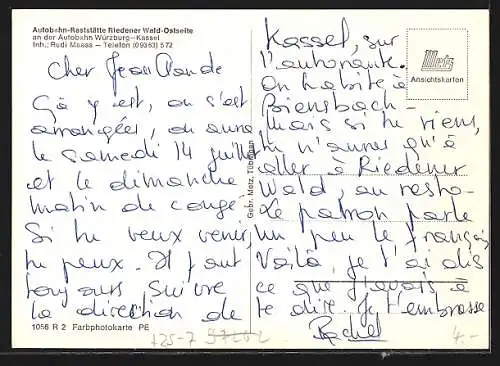 Autobahn-Raststätte Riedener Wald-Ostseite
an der Autobahn Würzburg–Kassel
Inh.: Rudi Maass – Telefon (09363) 572
Cher Jean Claude
Ça y est, on s'est
arrangées, on aura
le samedi 14 juillet
et le dimanche
matin de congé.
Si tu veux venir,
tu peux. Il faut
toujours suivre
la direction de
1056 R 2 Farbphotokarte PE
Gebr. Metz, Tübingen
Metz
Ansichtskarten
Kassel, sur
l'autoroute.
On habite à
Biensbach
mais si tu viens,
tu n'auras qu'à
aller à Riedener
Wald, au resto-
Le patron parle
un peu le français
Voilà, je t'ai dis
ce que j'avais à
te dire. Je t'embrasse
Rachel
4.-